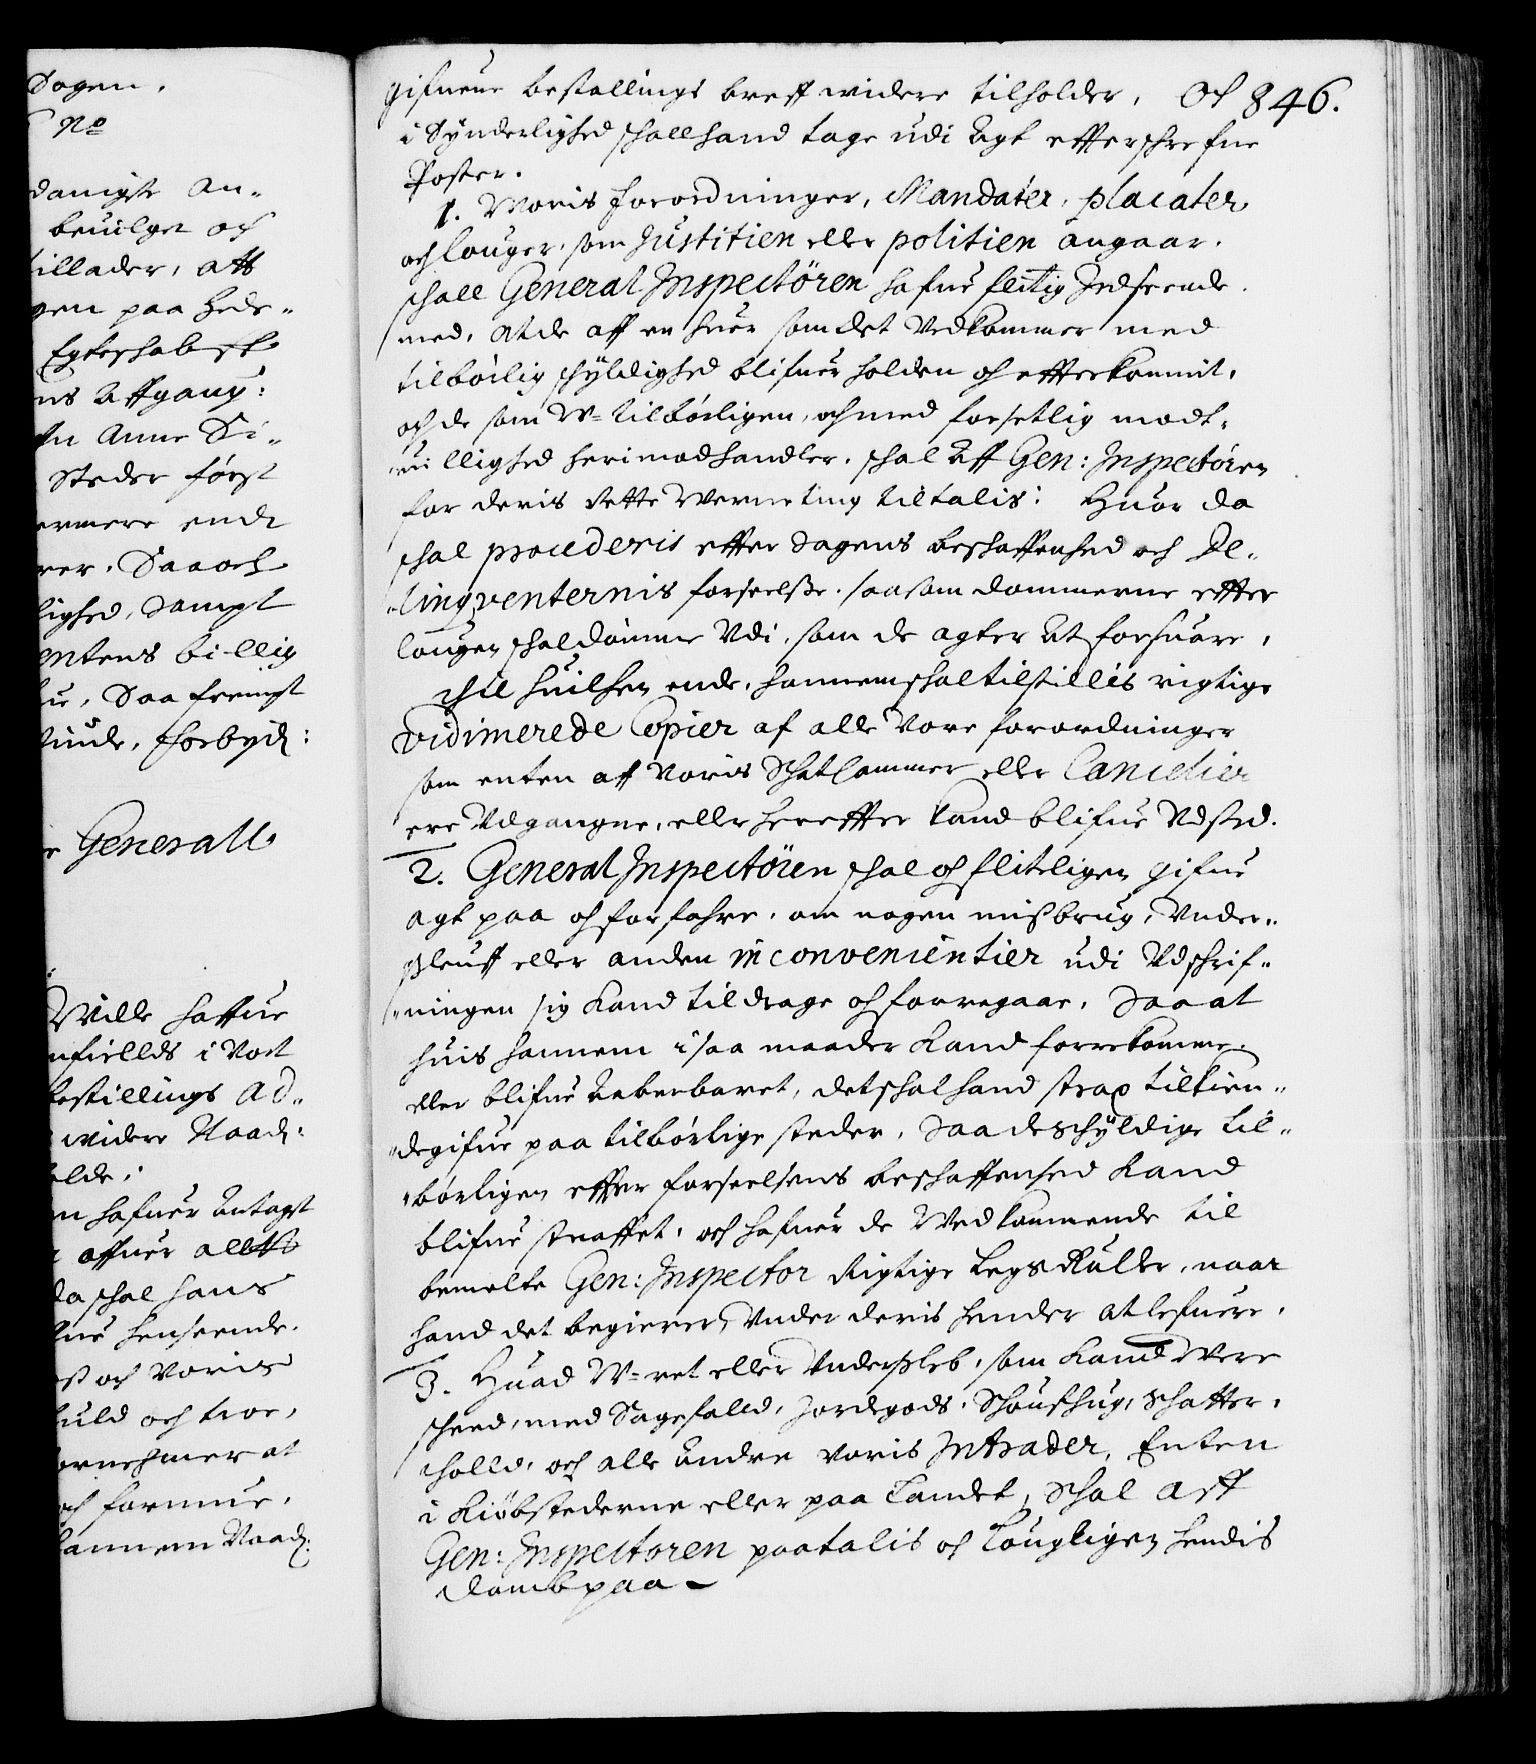 Sagen.
No
danigst An-
beuilget och
tillader, att
gen paa Hede-
Egteskab
ns Affgang:
Anne Si-
Steder først
ermere end
rer. Saa och
lighed, Sampt
entens billig
Saa fremst
Forbyd:
Generall
Wille haffue
nfields i Vort
bestillings Ad-
widere Naad:
elde:
en hafuer Antagit
affuer alle
da schal hans
fue henseende.
och Voris
huld och troe,
ornehmer at
och formue,
hannem Naad:
846.
gifuene bestallings breff widere tilholder, Och
i Synderlighed schall hand tage udi Agt effterschrefne
Poster.
1. Woris Forordninger, Mandater, placater
och Louger, som Justitien eller politien angaar.
schall General Inspectören hafue flitig Indseende
med, At de aff en huer som det Vedkommer med
tilbörlig schyldighed blifuer holden och effterkommit,
och de som W-tilbörligen, och med forsetlig modt-
uillighed herimod handler, schal Aff Gen: Inspectören
for deris Rette Werneting tiltalis: Huor da
schal procederis effter Sagens beschaffenhed och De-
linqventernis forseelße, saasom Dommerne effter
Lougen schal dömme Udi, som de agter At forsuare,
Til huilchen ende, hannem schal tilstillis rigtige
Vidimerede Copier af alle Vore forordninger
som enten aff Voris Schatkammer eller Cancelier
ere Udgangne, eller hereffter kand blifue Udsted.
2. General Inspectören schal och fliteligen gifue
agt paa och forfahre, om nogen mißbrug, Under-
ßleuff eller anden inconvenientier udi Udschrif-
ningen sig kand tildrage och forregaae, Saa at
huis hannem i saa maader kand forrekomme,
eller blifue Aabenbaret, det schal hand strax tilkien-
degifue paa tilbörlige steder, Saa de schyldige til-
börligen effter forseelsens beschaffenhed kand
blifue straffet, och hafuer de Wedkommende til
bemelte Gen: Inspector Rigtige Legs Ruller, naar
hand det begierer, Under deris hender at lefuere.
3. Huad W-ret eller Underßleb, som kand Were
scheed, med Sagefalld, Jordegods, Schoufhug, Schatter,
Tolld, och alle Andre Voris Intrader, Enten
i Kiöbstederne eller paa Landet, Schal Aff
Gen: Inspectoren paatalis och Lougligen hendis
Dom b paa